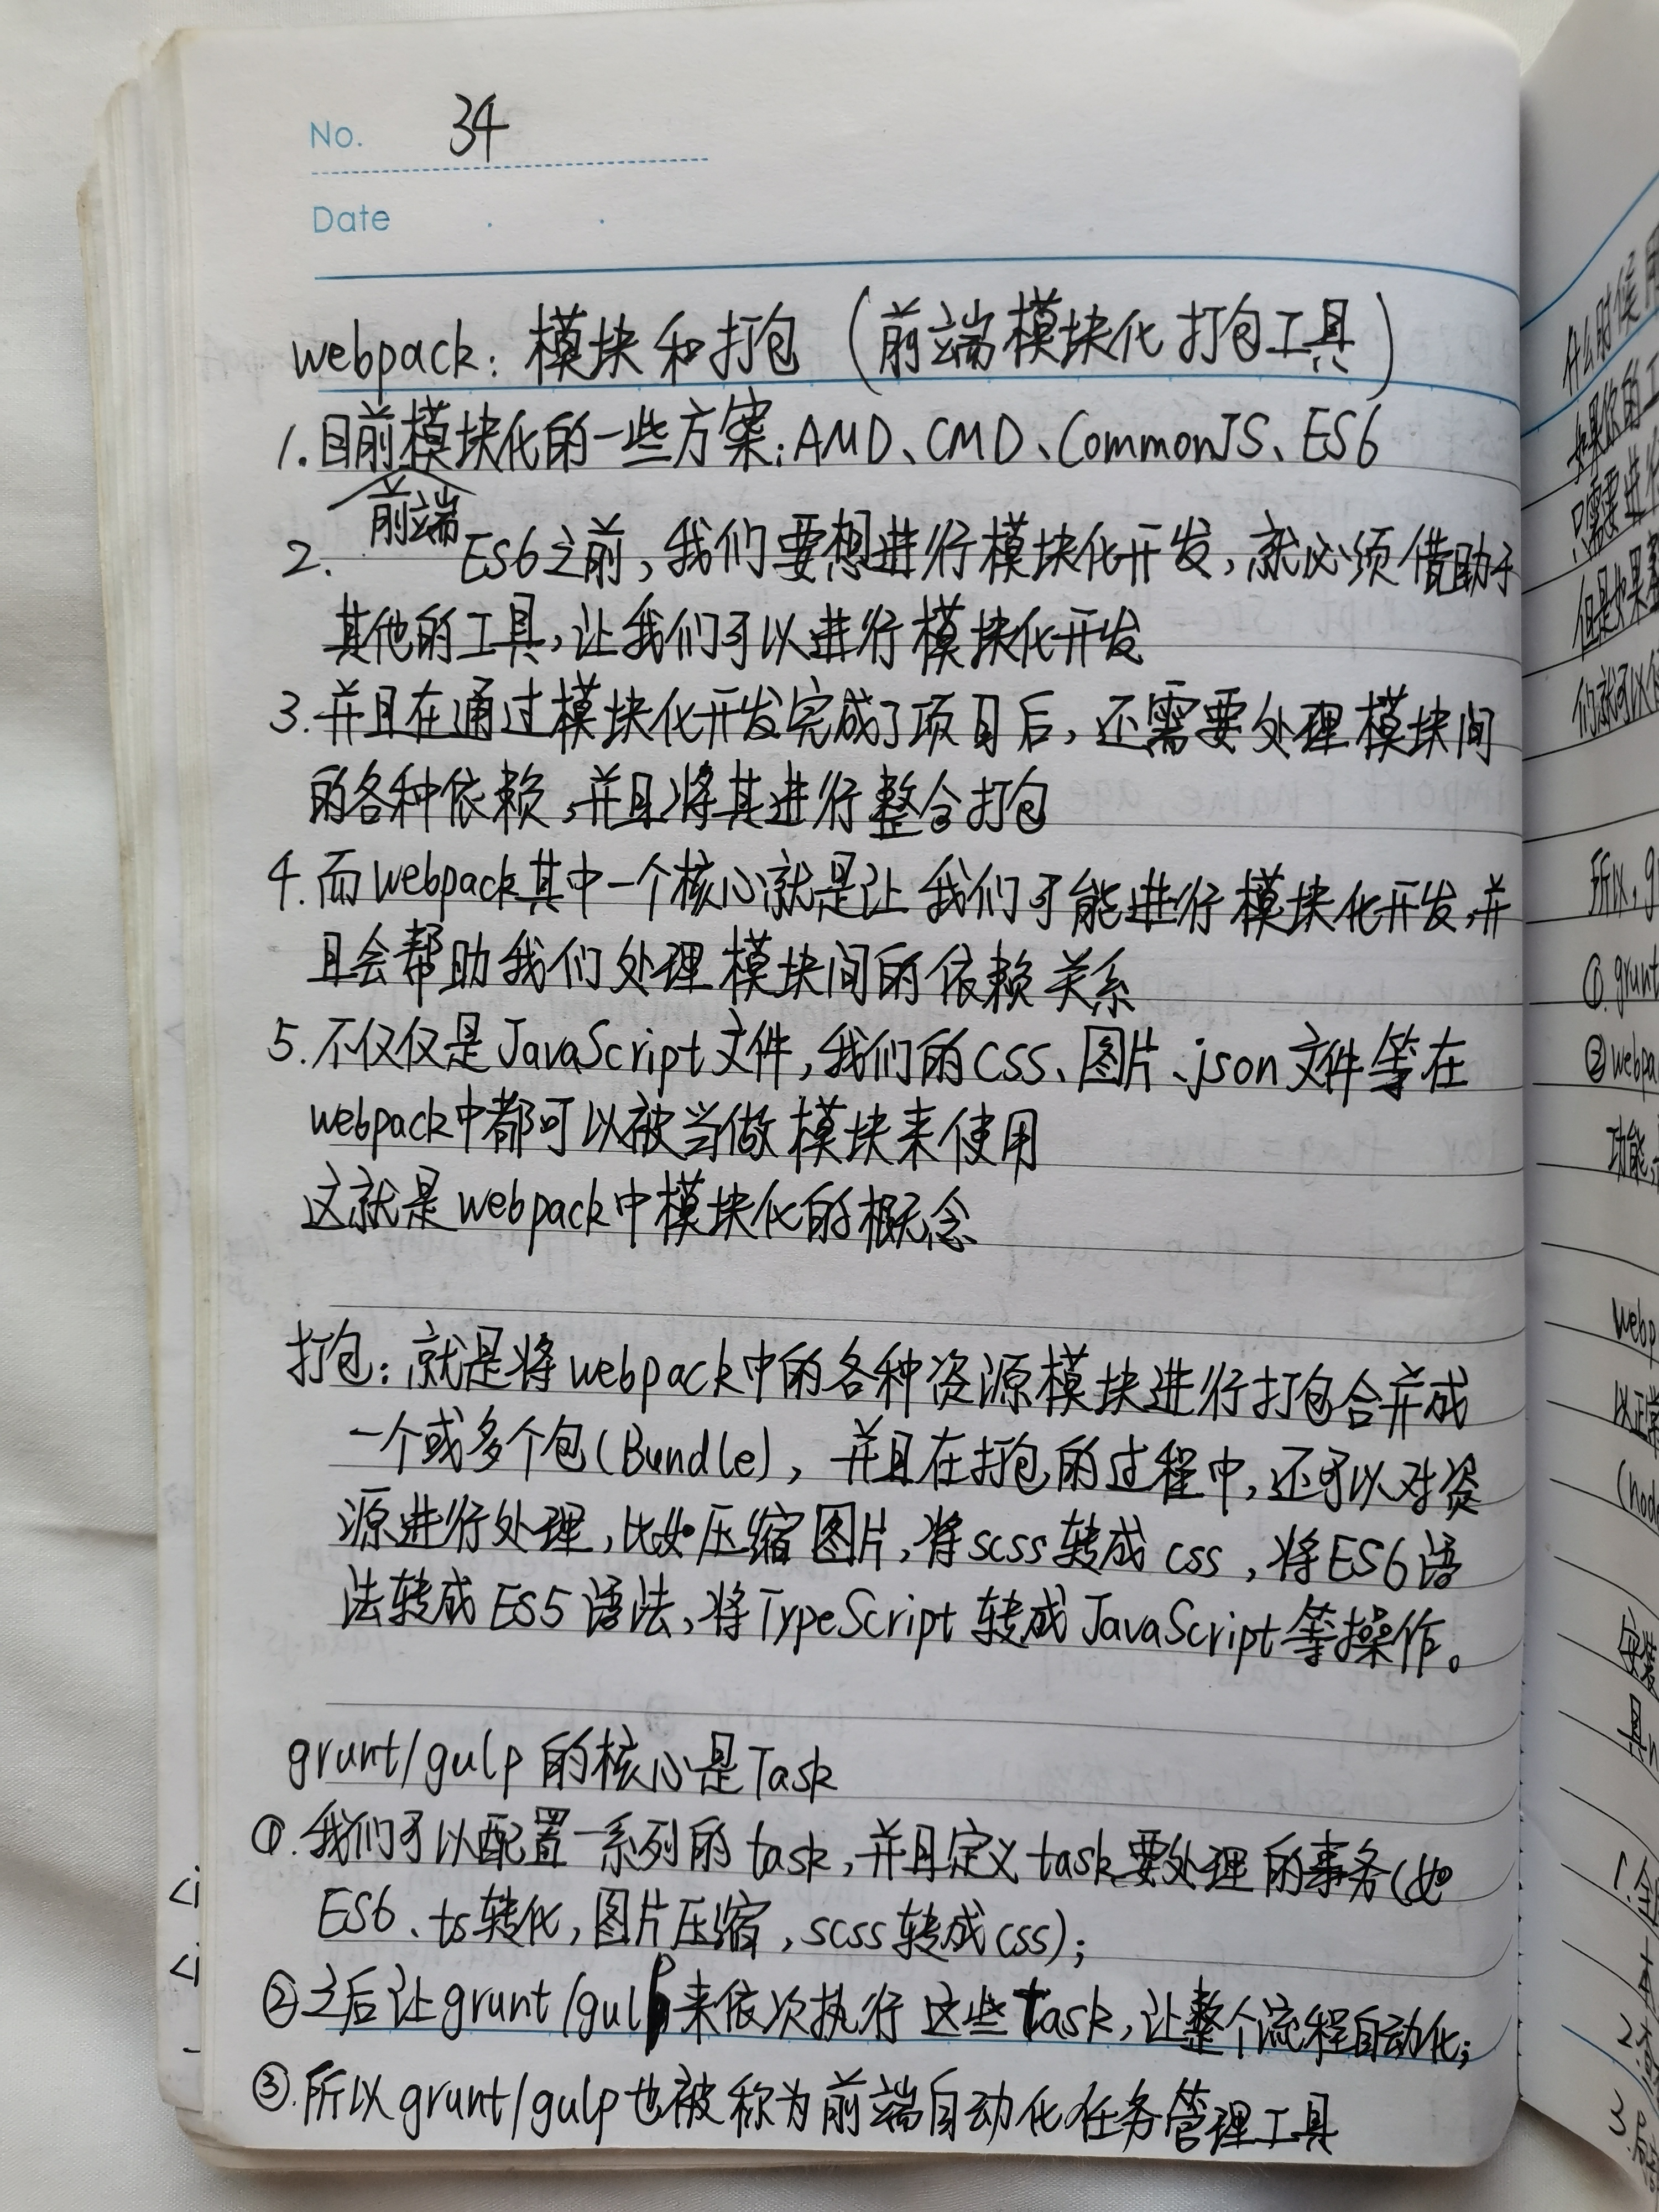 No. 34
Date
webpack: 模块和打包 (前端模块化打包工具)
1. 目前模块化的一些方案: AMD、CMD、CommonJS、ES6
前端
2. ES6之前, 我们要想进行模块化开发, 就必须借助于
其他的工具, 让我们可以进行模块化开发
3. 并且在通过模块化开发完成了项目后, 还需要处理模块间
的各种依赖, 并且将其进行整合打包
4. 而webpack其中一个核心就是让我们可能进行模块化开发, 并
且会帮助我们处理模块间的依赖关系
5. 不仅仅是JavaScript文件, 我们的CSS、图片、json文件等在
webpack中都可以被当做模块来使用
这就是webpack中模块化的概念
打包: 就是将webpack中的各种资源模块进行打包合并成
一个或多个包(Bundle), 并且在打包的过程中, 还可以对资
源进行处理, 比如压缩图片, 将scss转成css, 将ES6语
法转成ES5语法, 将TypeScript转成JavaScript等操作。
grunt/gulp的核心是Task
①. 我们可以配置一系列的task, 并且定义task要处理的事务(如
ES6、ts转化, 图片压缩, scss转成css);
②之后让grunt/gulp来依次执行这些Task, 让整个流程自动化;
③. 所以grunt/gulp也被称为前端自动化任务管理工具
<i
<i
什么时候
如果你的工
只需要进行
但是如果
们就可以
所以, g
① grunt
② webpa
功能,
webp
以正常
(nod
安装
1. 全
2.
3. 局